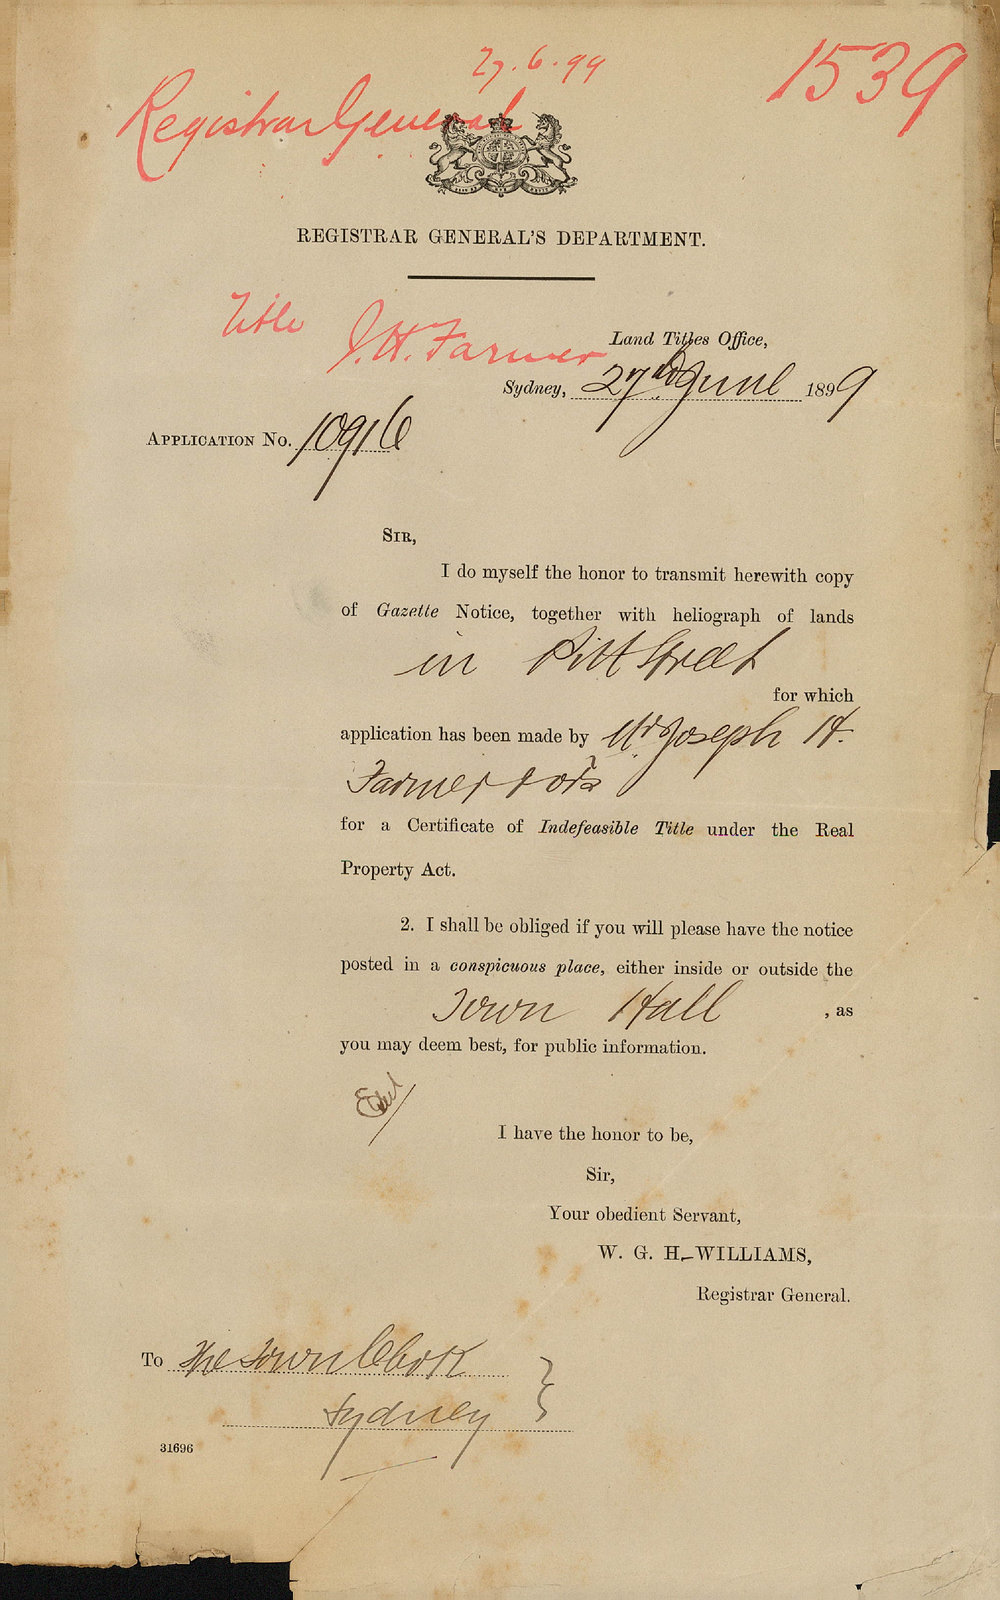 27.6.99
1539
Registrar General
REGISTRAR GENERAL'S DEPARTMENT.
Title
J. H. Farmer
Land Titles Office,
Sydney, 27th June 1899
APPLICATION No. 10916
SIR,
I do myself the honor to transmit herewith copy
of Gazette Notice, together with heliograph of lands
in Pitt Street
for which
application has been made by Mr Joseph H.
Farmer & ors
for a Certificate of Indefeasible Title under the Real
Property Act.
2. I shall be obliged if you will please have the notice
posted in a conspicuous place, either inside or outside the
Town Hall , as
you may deem best, for public information.
I have the honor to be,
Sir,
Your obedient Servant,
W. G. H. WILLIAMS,
Registrar General.
To The Town Clerk
Sydney
31696